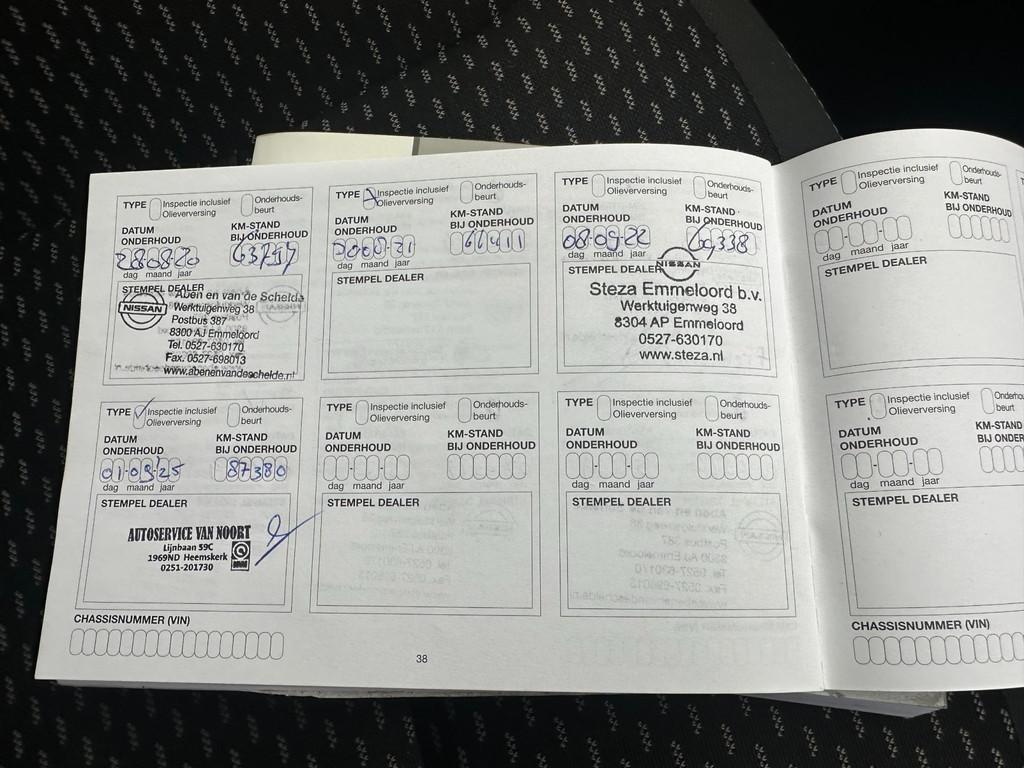 TYPE Inspectie inclusief Olieverversing Onderhouds-beurt
DATUM ONDERHOUD KM-STAND BIJ ONDERHOUD
28-08-20 63797
dag maand jaar
STEMPEL DEALER
NISSAN
Aben en van de Schelde
Werktuigenweg 38
Postbus 387
8300 AJ Emmeloord
Tel. 0527-630170
Fax. 0527-698013
www.abenenvandeschelde.nl
TYPE Inspectie inclusief Olieverversing Onderhouds-beurt
DATUM ONDERHOUD KM-STAND BIJ ONDERHOUD
66411
dag maand jaar
STEMPEL DEALER
TYPE Inspectie inclusief Olieverversing Onderhouds-beurt
DATUM ONDERHOUD KM-STAND BIJ ONDERHOUD
08-09-22 69338
dag maand jaar
STEMPEL DEALER
NISSAN
Steza Emmeloord b.v.
Werktuigenweg 38
8304 AP Emmeloord
0527-630170
www.steza.nl
TYPE Inspectie inclusief Olieverversing Onderhouds-beurt
DATUM ONDERHOUD KM-STAND BIJ ONDERHOUD
01-09-25 87380
dag maand jaar
STEMPEL DEALER
AUTOSERVICE VAN NOORT
Lijnbaan 59C
1969ND Heemskerk
0251-201730
TYPE Inspectie inclusief Olieverversing Onderhouds-beurt
DATUM ONDERHOUD KM-STAND BIJ ONDERHOUD
dag maand jaar
STEMPEL DEALER
TYPE Inspectie inclusief Olieverversing Onderhouds-beurt
DATUM ONDERHOUD KM-STAND BIJ ONDERHOUD
dag maand jaar
STEMPEL DEALER
CHASSISNUMMER (VIN)
38
TYPE Inspectie inclusief Olieverversing Onderhouds-beurt
DATUM ONDERHOUD KM-STAND BIJ ONDERHOUD
dag maand jaar
STEMPEL DEALER
TYPE Inspectie inclusief Olieverversing beurt
DATUM ONDERHOUD KM-STAND BIJ
dag maand jaar
STEMPEL DEALER
CHASSISNUMMER (VIN)